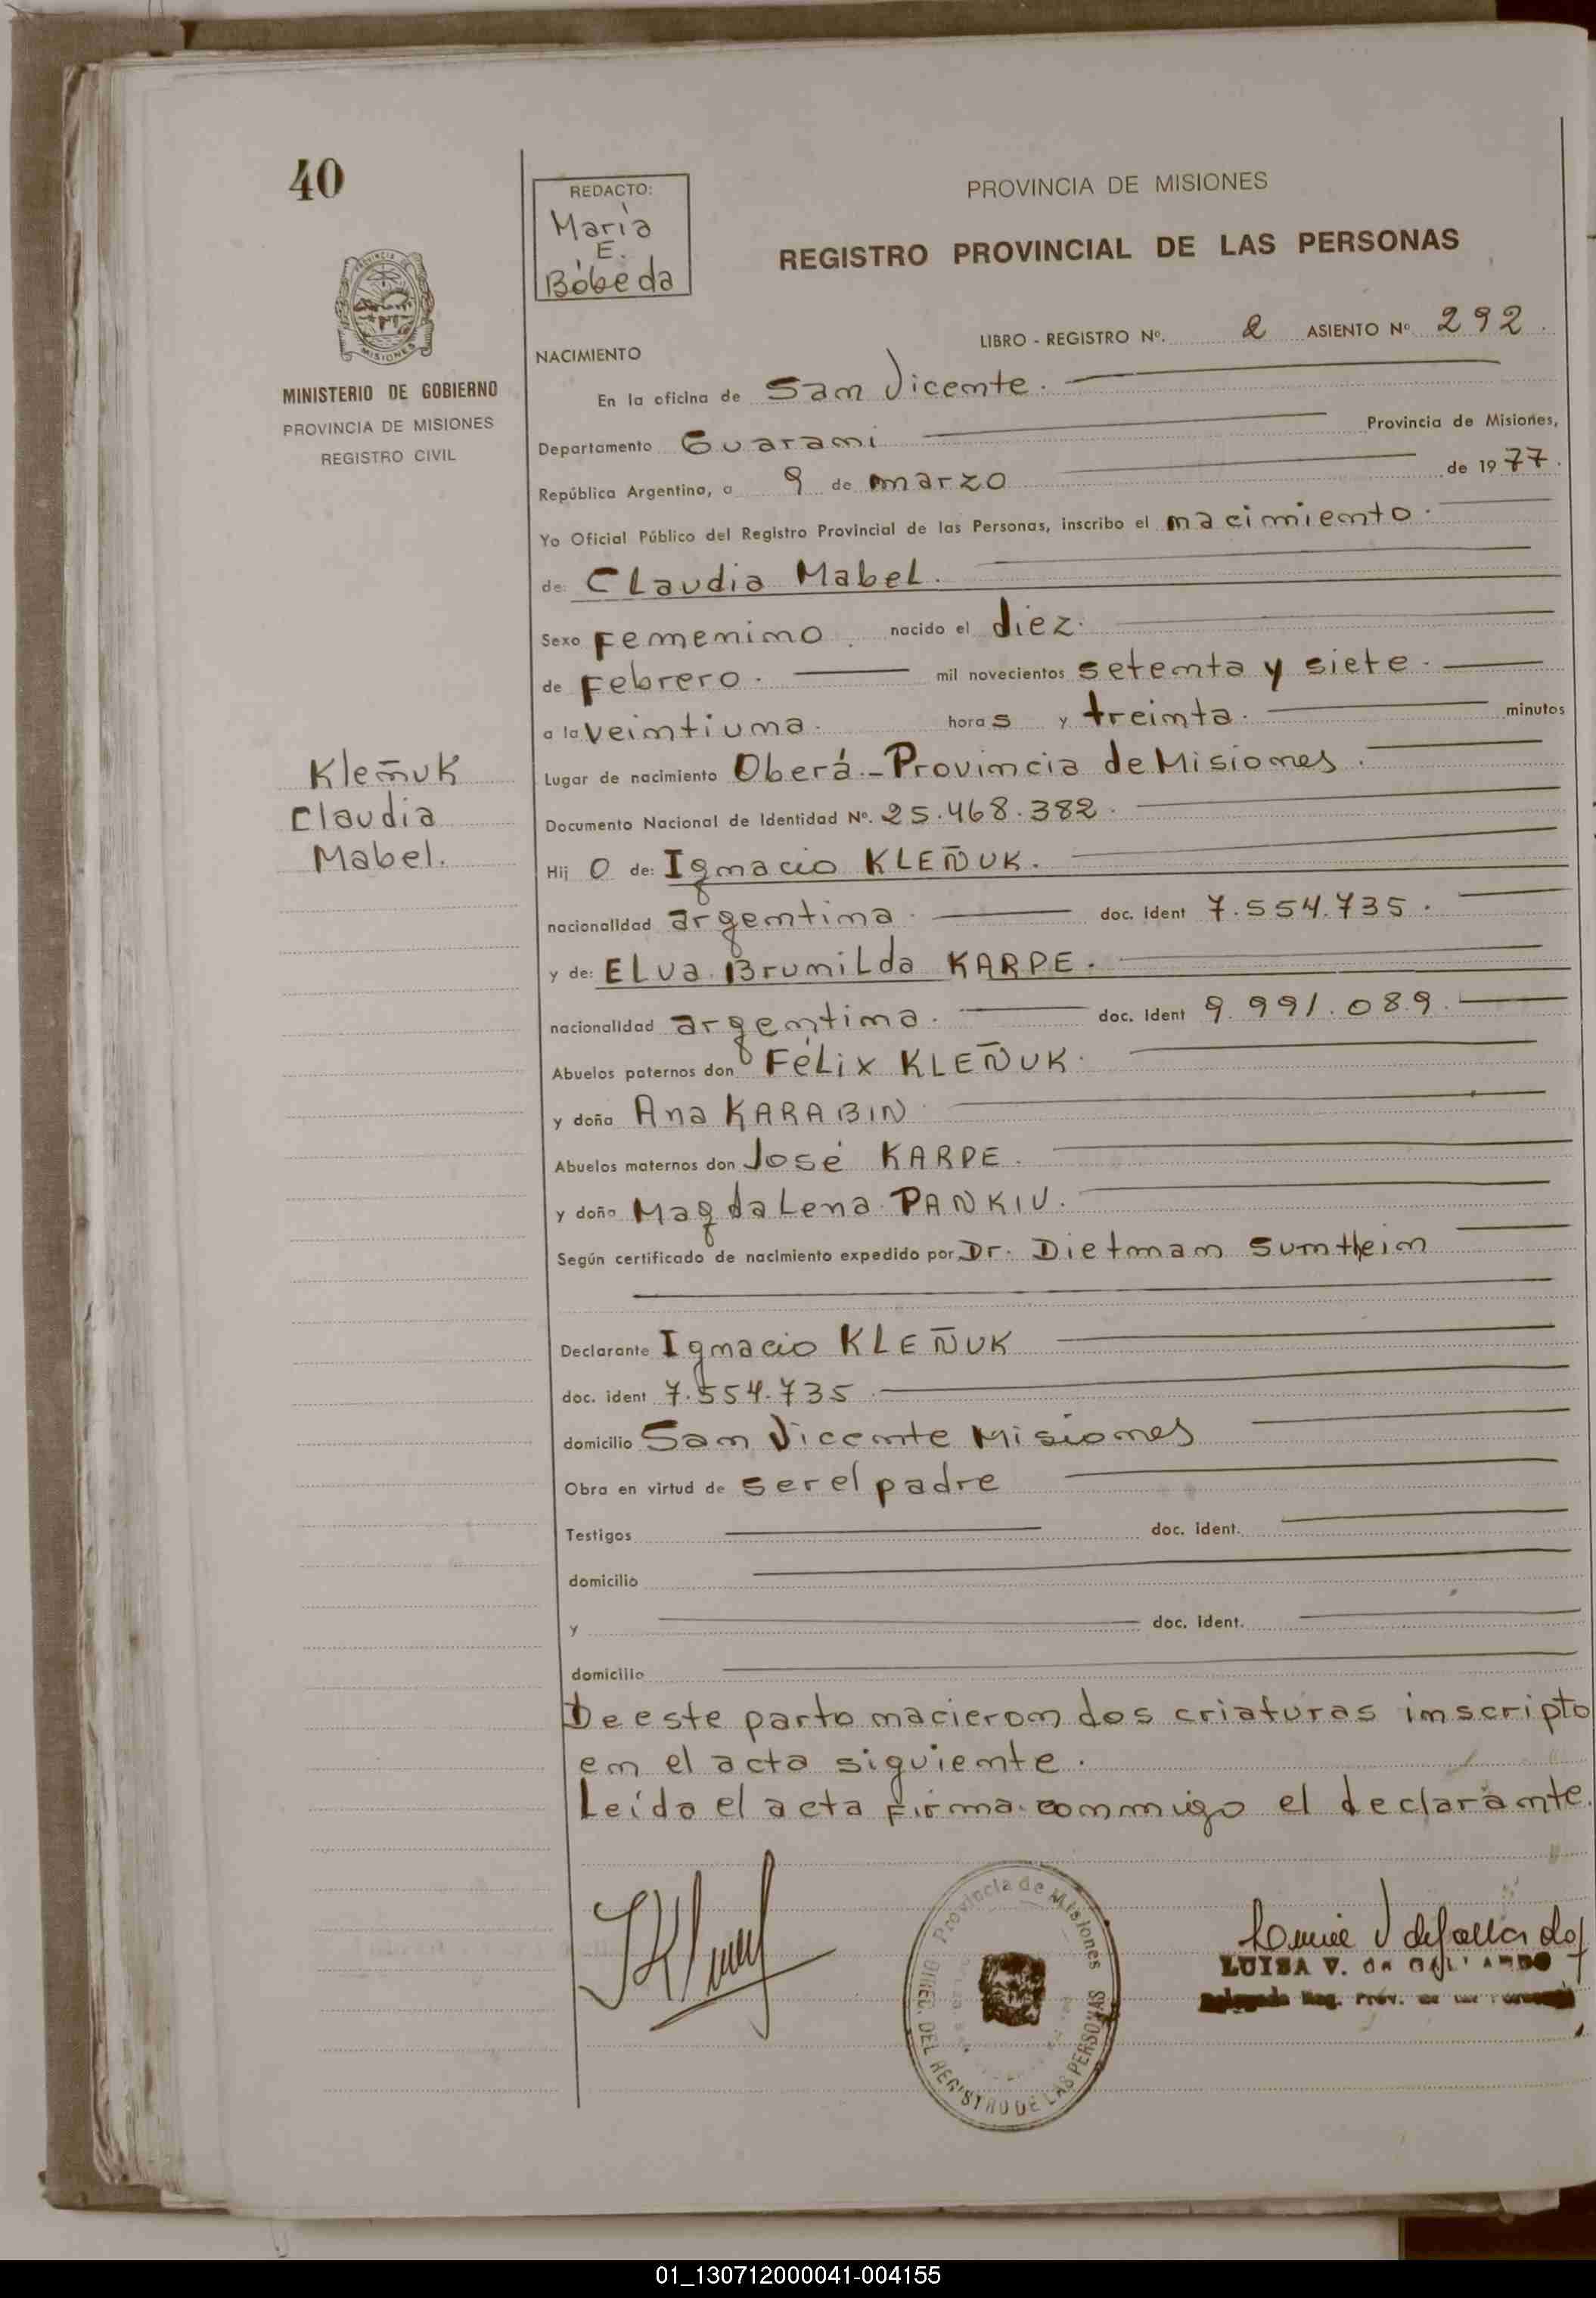 40
REDACTO:
María
E.
Bóbeda
PROVINCIA DE MISIONES
REGISTRO PROVINCIAL DE LAS PERSONAS
MISIONES
MINISTERIO DE GOBIERNO
PROVINCIA DE MISIONES
REGISTRO CIVIL
LIBRO - REGISTRO Nº. 2 ASIENTO Nº 292.
NACIMIENTO
En la oficina de San Vicente.
Departamento Guaraní Provincia de Misiones,
República Argentina, a 9 de marzo de 1977.
Yo Oficial Público del Registro Provincial de las Personas, inscribo el nacimiento.
de: Claudia Mabel.
Sexo Femenino. nacido el diez.
de Febrero. mil novecientos setenta y siete.
a la veintiuna. horas y treinta. minutos
Kleñuk
Claudia
Mabel.
Lugar de nacimiento Oberá.- Provincia de Misiones.
Documento Nacional de Identidad Nº. 25.468.382.
Hij O de: Ignacio KLEÑUK.
nacionalidad argentina. doc. ident 7.554.735.
y de: ELva Brunilda KARPE.
nacionalidad argentina. doc. ident 9.991.089.
Abuelos paternos don Félix KLEÑUK.
y doña Ana KARABIN
Abuelos maternos don José KARPE.
y doña Magdalena PANKIU.
Según certificado de nacimiento expedido por Dr. Dietman Suntheim
Declarante Ignacio KLEÑUK
doc. ident 7.554.735.
domicilio San Vicente Misiones
Obra en virtud de ser el padre
Testigos doc. ident.
domicilio
y doc. ident.
domicilio
De este parto nacieron dos criaturas inscripto
en el acta siguiente.
Leída el acta firma conmigo el declarante.
Provincia de Misiones
DEL REGISTRO DE LAS PERSONAS
LUISA V. DE GALLARDO
Delegada Reg. Prov. de las Personas
01_130712000041-004155